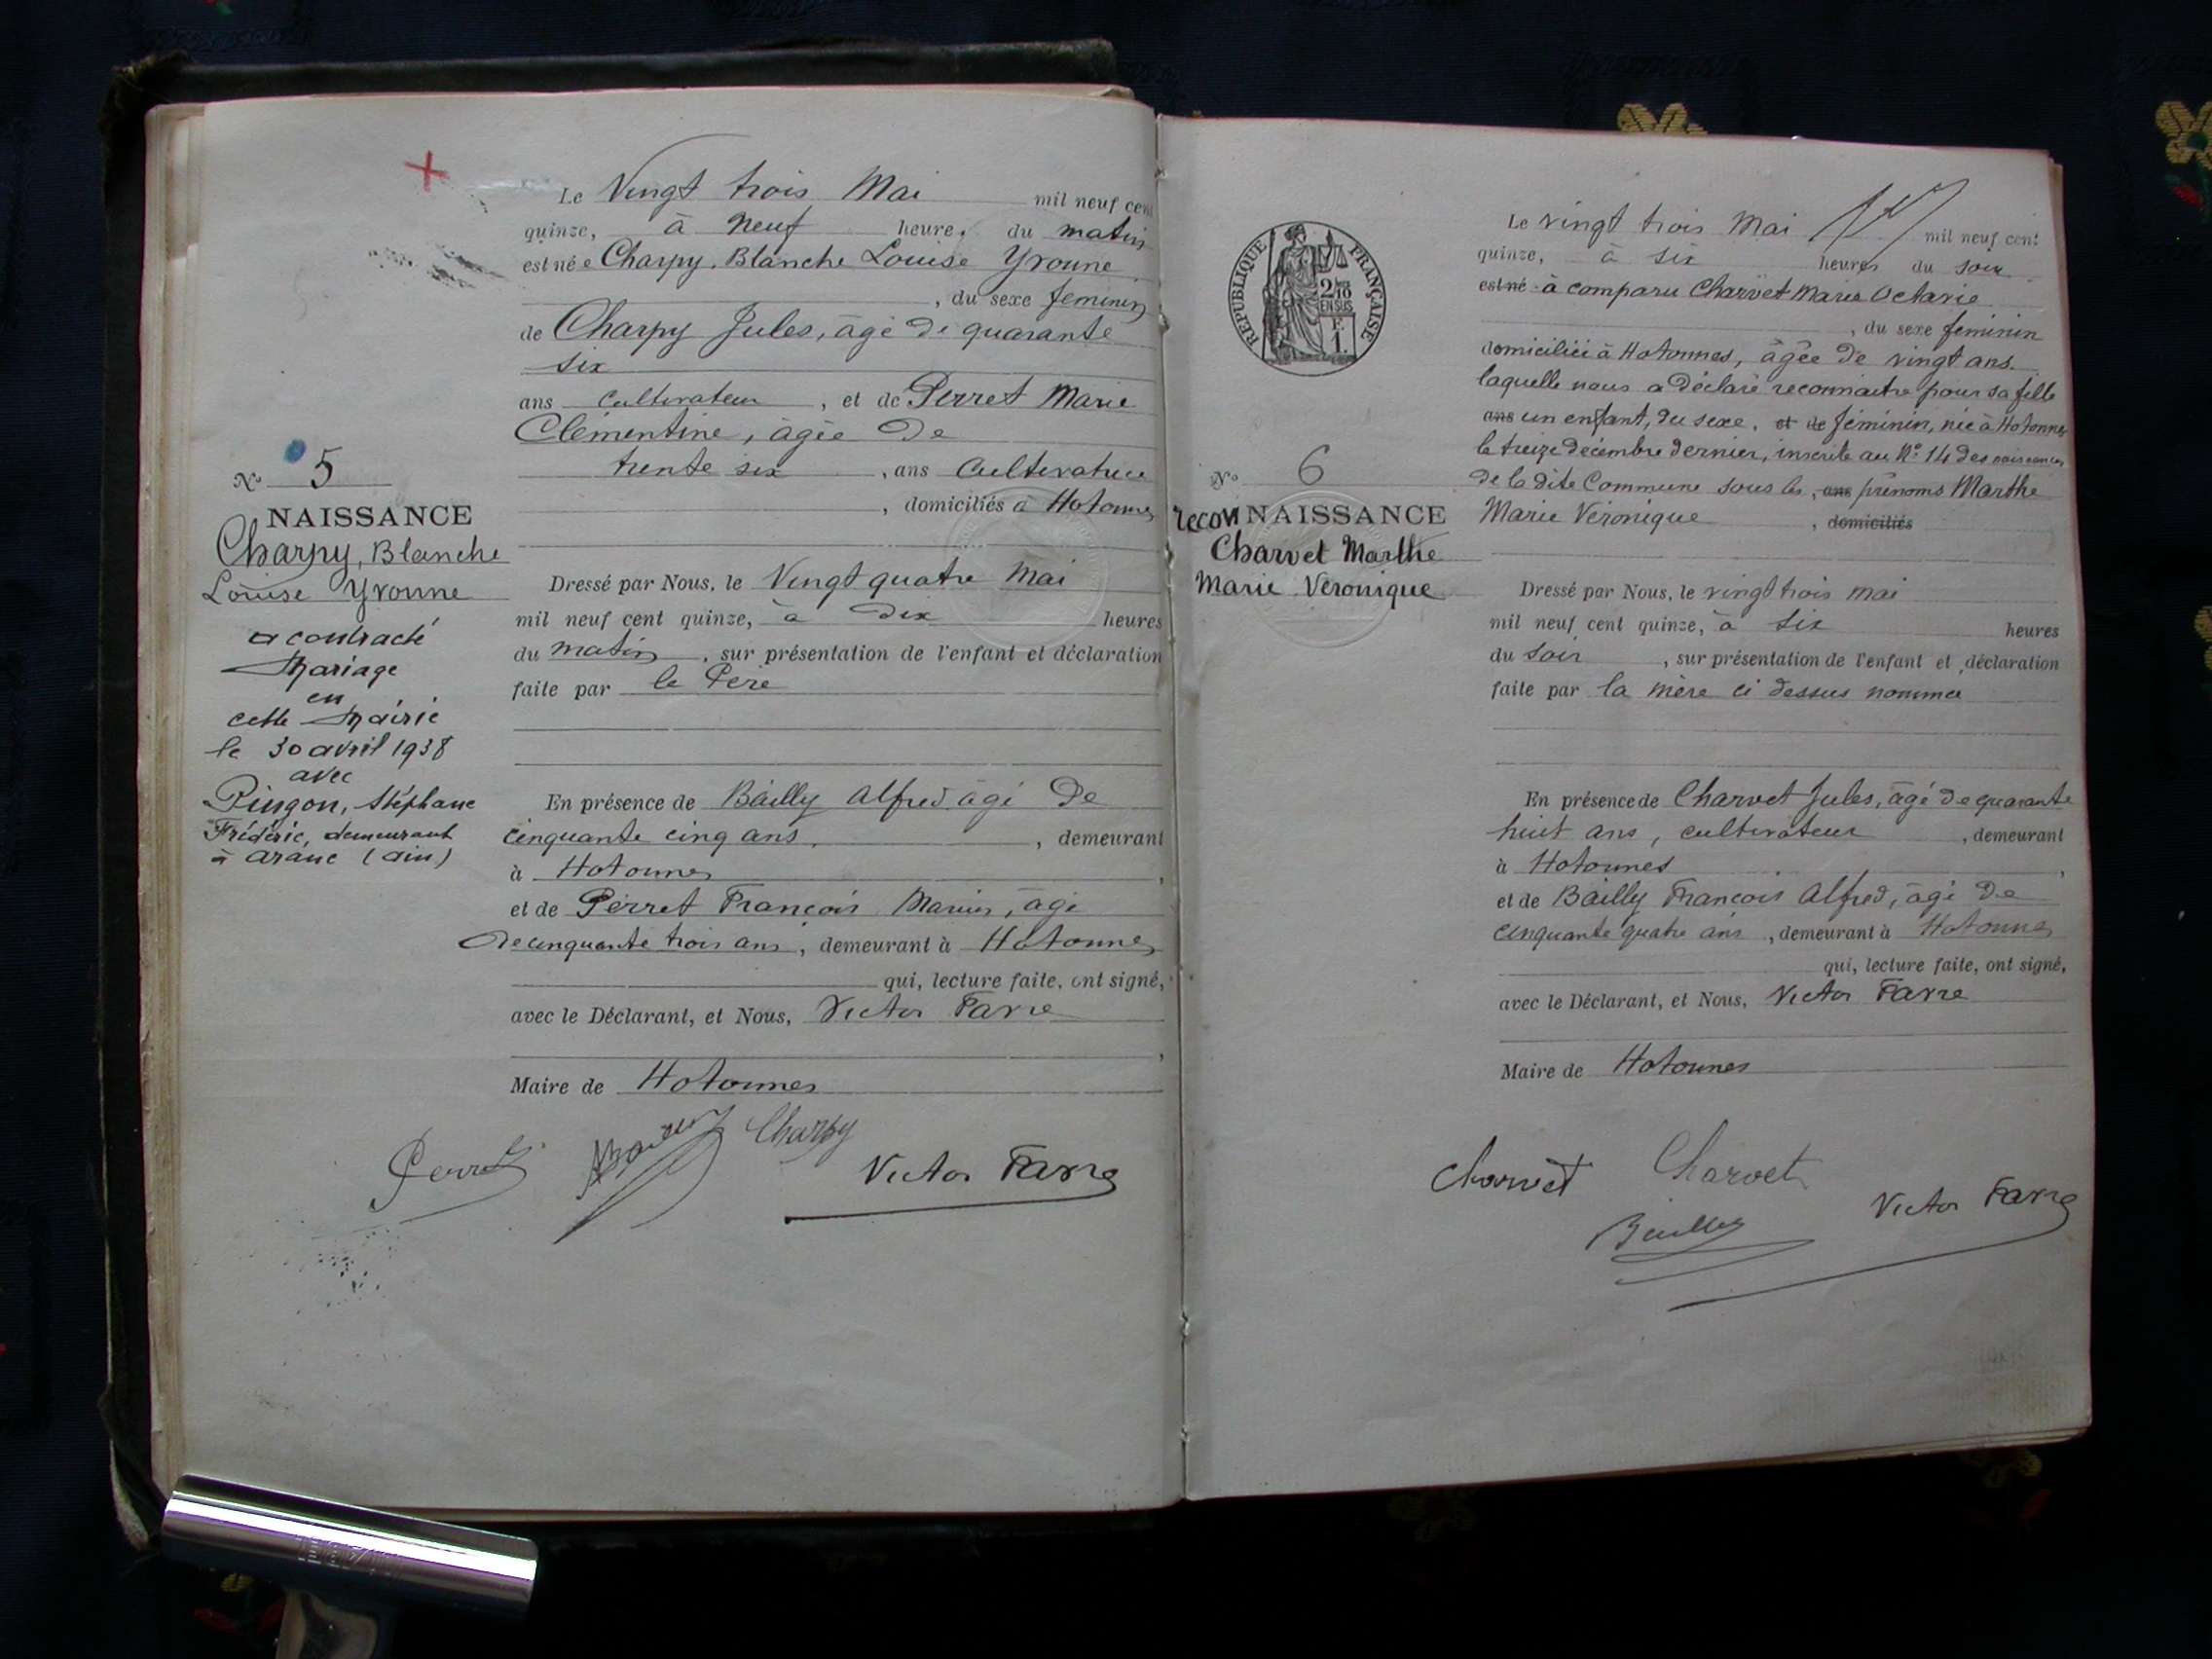 Le Vingt trois Mai mil neuf cent
quinze, à neuf heure. du matin
est née Charpy, Blanche Louise Yvonne
, du sexe feminin
de Charpy Jules, âgé de quarante
six
ans cultivateur , et de Perret Marie
Clémentine, âgée de
trente six , ans Cultivatrice
, domiciliés à Hotonnes
N° 5
NAISSANCE
Charpy, Blanche
Louise Yvonne
a contracté
Mariage
en
cette Mairie
le 30 avril 1938
avec
Pingon, Stéphane
Frédéric, demeurant
à Aranc (Ain)
Dressé par Nous, le Vingt quatre Mai
mil neuf cent quinze, à dix heures
du matin , sur présentation de l'enfant et déclaration
faite par le Père
En présence de Bailly Alfred âgé de
cinquante cinq ans, , demeurant
à Hotonnes ,
et de Perret François Marius, âgé
de cinquante trois ans, demeurant à Hotonnes
qui, lecture faite, ont signé,
avec le Déclarant, et Nous, Victor Favre
,
Maire de Hotonnes
Perret
Bailly
Charpy
Victor Favre
RÉPUBLIQUE FRANÇAISE
2/10
EN SUS
F.
1.
Le vingt trois Mai mil neuf cent
quinze, à six heures du soir
est né à comparu Charvet Marie Octavie
, du sexe feminin
domiciliée à Hotonnes, âgée de vingt ans.
laquelle nous a déclaré reconnaitre pour sa fille
ans un enfant, du sexe, et de féminin, née à Hotonnes
le treize décembre dernier, inscrite au N° 14 des naissances
de la dite Commune sous les , ans prénoms Marthe
Marie Veronique , domiciliés
N° 6
reconNAISSANCE
Charvet Marthe
Marie Veronique
Dressé par Nous, le vingt trois mai
mil neuf cent quinze, à six heures
du soir , sur présentation de l'enfant et déclaration
faite par la mère ci dessus nommée
En présence de Charvet Jules, âgé de quarante
huit ans, cultivateur , demeurant
à Hotonnes ,
et de Bailly François Alfred, âgé de
cinquante quatre ans , demeurant à Hotonnes
qui, lecture faite, ont signé,
avec le Déclarant, et Nous, Victor Favre
Maire de Hotonnes
Charvet
Charvet
Bailly
Victor Favre